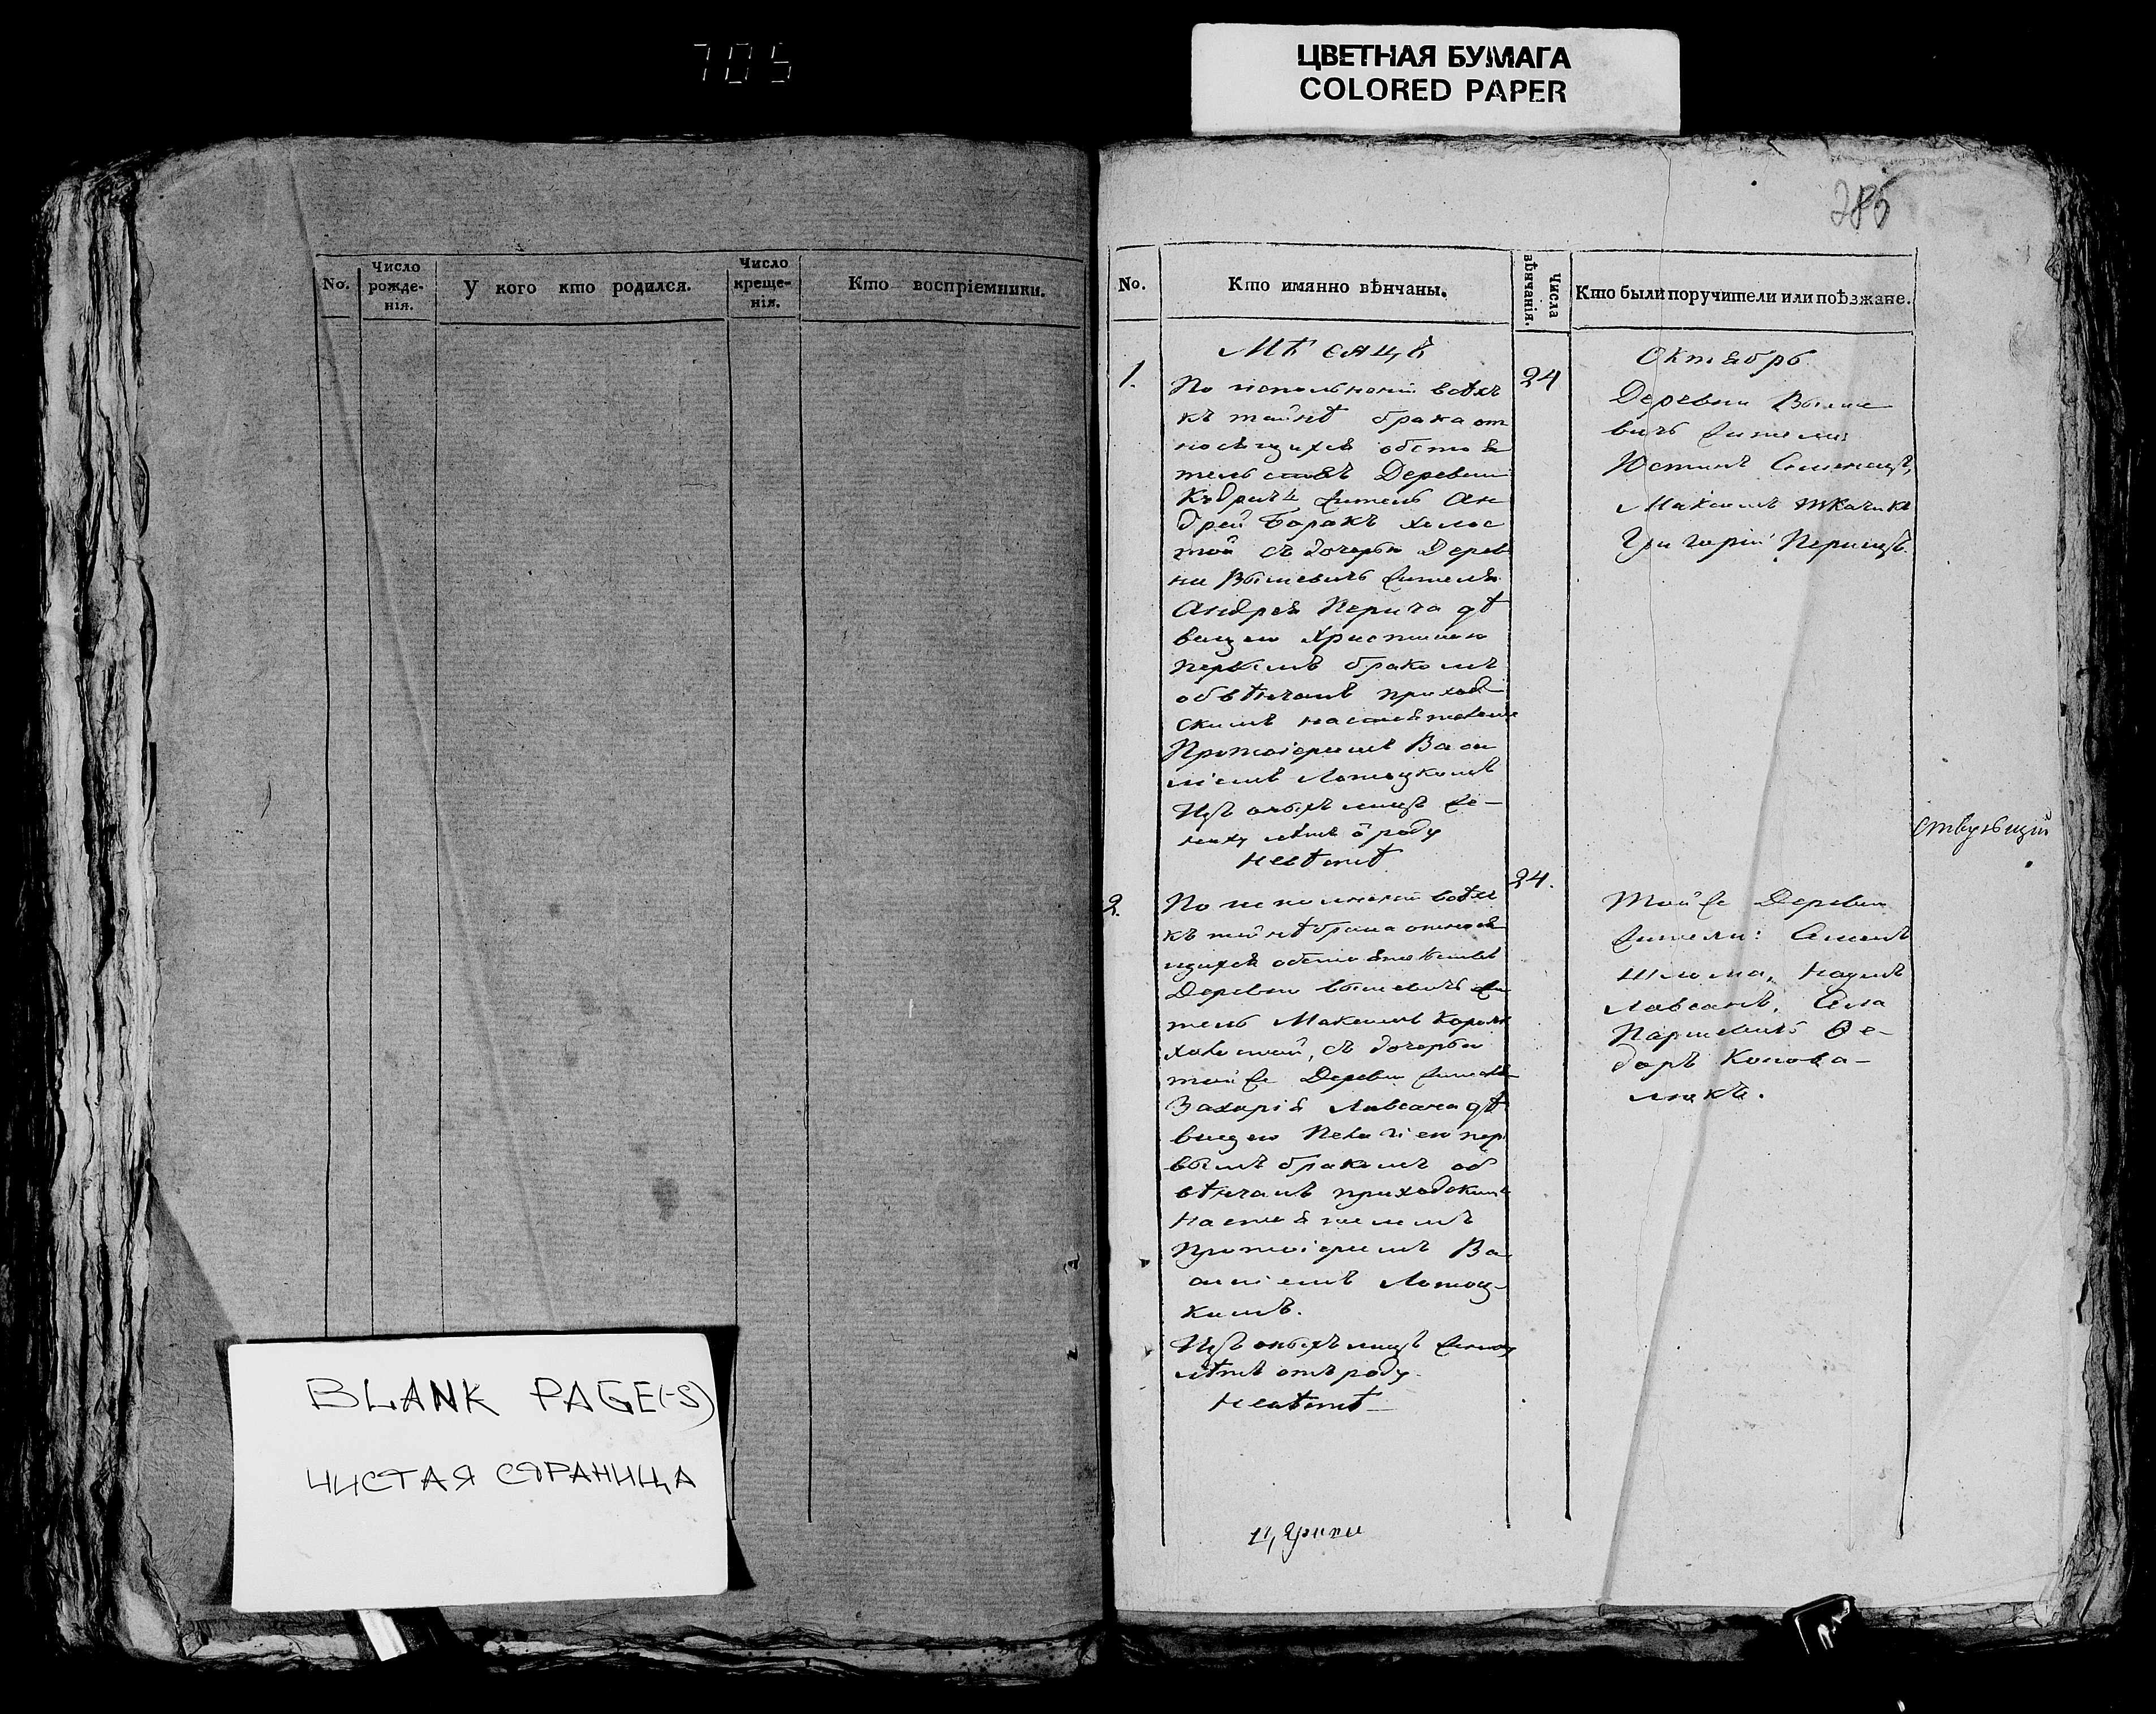 705
ЦВЕТНАЯ БУМАГА
COLORED PAPER
286
No.
Число рожде-нія.
У кого кто родился.
Число креще-нія.
Кто воспріемники.
BLANK PAGE(-S)
ЧИСТАЯ СТРАНИЦА
No.
Кто имянно вѣнчаны.
Числа вѣнчанія.
Кто были поручители или поѣзжане.
Мѣсяцъ
1.
По исполненіи всѣхъ
къ тайнѣ брака от
носящихся обстоя
тельствъ Деревни
житель Ан
дрей Боракъ холос
той съ дочерью Дерев
ни Вышевичь жителя
Андрея Перица дѣ
вицею Христиною
первымъ бракомъ
обвѣнчанъ приход
скимъ настоятелемъ
Протоіереемъ Васи
ліемъ Лотоцкимъ
Изъ оныхъ лицъ же-
ниху лѣтъ о роду
24
Октябрь
Деревни Выше
вичь жители:
Юстинъ
Максимъ Ткачикъ
Григорій Перицъ.
ствующій
2.
По исполненіи всѣхъ
къ тайнѣ брака относя
щихся обстоятельствъ
Деревни Вышевичь жи
тель Максимъ Король
холостой, съ дочерью
той же Деревни жителя
Захарія Лавсана дѣ
вицею Пелагіею пер
вымъ бракомъ об
вѣнчанъ приходскимъ
настоятелемъ
Протоіереемъ Ва
силіемъ Лотоц-
кимъ.
Изъ оныхъ лицъ жениху
лѣтъ отъ роду
24.
Той же Деревни
жители: Семенъ
Шлома, Наумъ
Лавсанъ, Села
Паршевичь Ѳе-
доръ Конова-
люкъ.